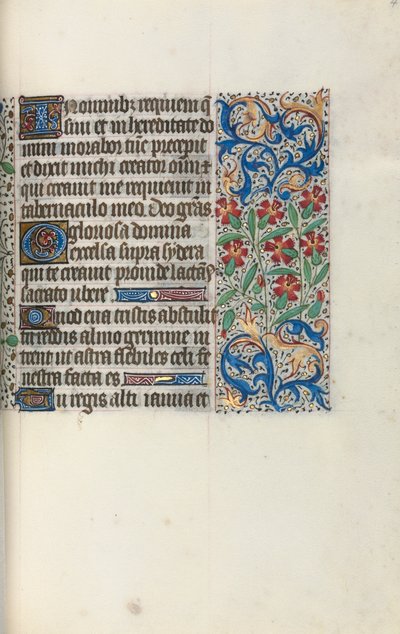 In omnibz requiem q̄
siui et in hereditate do
mini morabor tūc precepit
et dixit michi creator oīm ⁊
qui creauit me requieuit in
tabernaculo meo. Deo gr̄as
O gloriosa domina
excelsa supra sydera
qui te creauit prouide lactasti
sacrato ubere
Quod eua tristis abstulit
tu reddis almo germine in
trent ut astra flebiles celi fe
nestra facta es
Tu regis alti ianua et